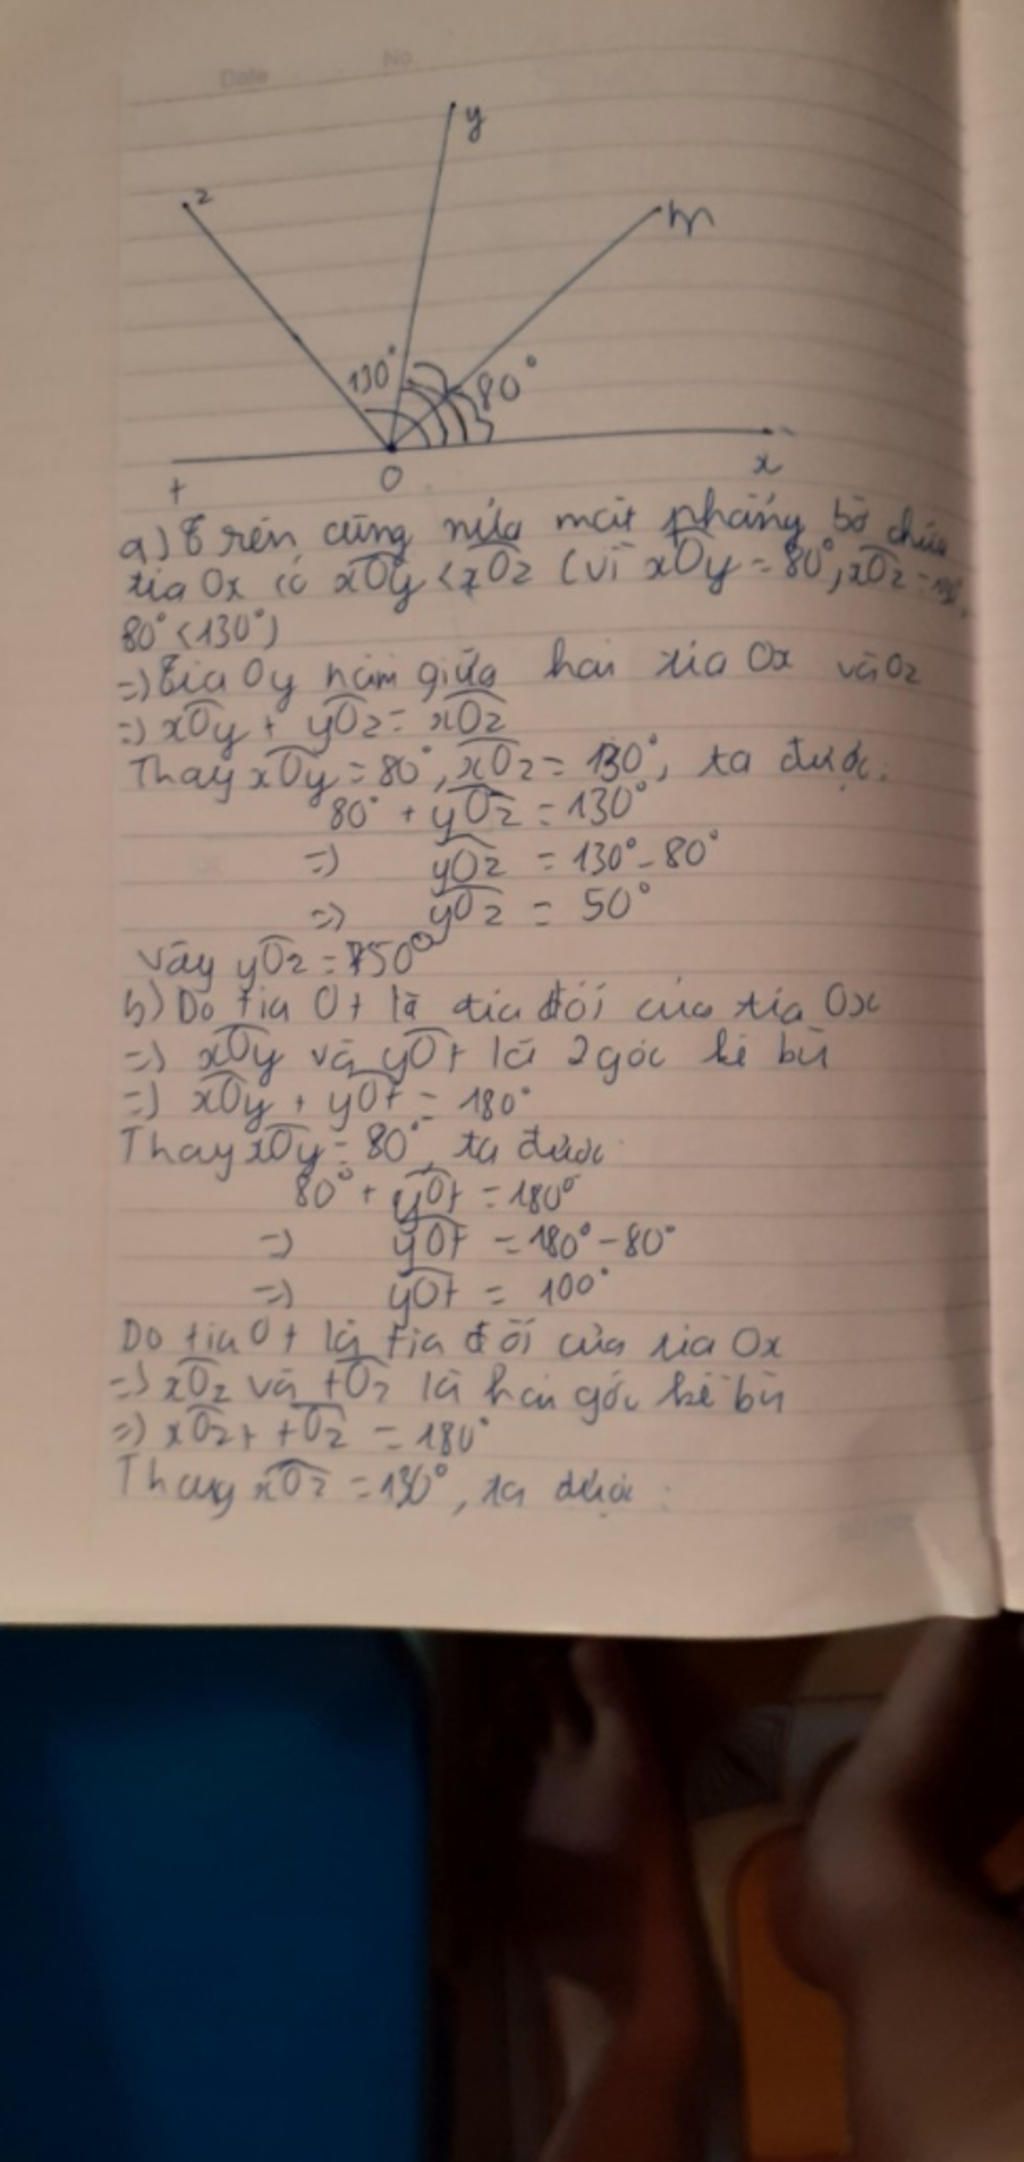 Date No
y
z
m
130°
80°
t
O
x
a) Trên cùng nửa mặt phẳng bờ chứa
tia Ox có xOy < xOz (vì xOy = 80°, xOz = 130°,
80° < 130°)
=) Tia Oy nằm giữa hai tia Ox và Oz
=) xOy + yOz = xOz
Thay xOy = 80°, xOz = 130°, ta được:
80° + yOz = 130°
=) yOz = 130° - 80°
=) yOz = 50°
Vậy yOz = 50°
b) Do tia Ot là tia đối của tia Ox
=) xOy và yOt là 2 góc kề bù
=) xOy + yOt = 180°
Thay xOy = 80°, ta được
80° + yOt = 180°
=) yOt = 180° - 80°
=) yOt = 100°
Do tia Ot là tia đối của tia Ox
=) xOz và tOz là hai góc kề bù
=) xOz + tOz = 180°
Thay xOz = 130°, ta được: